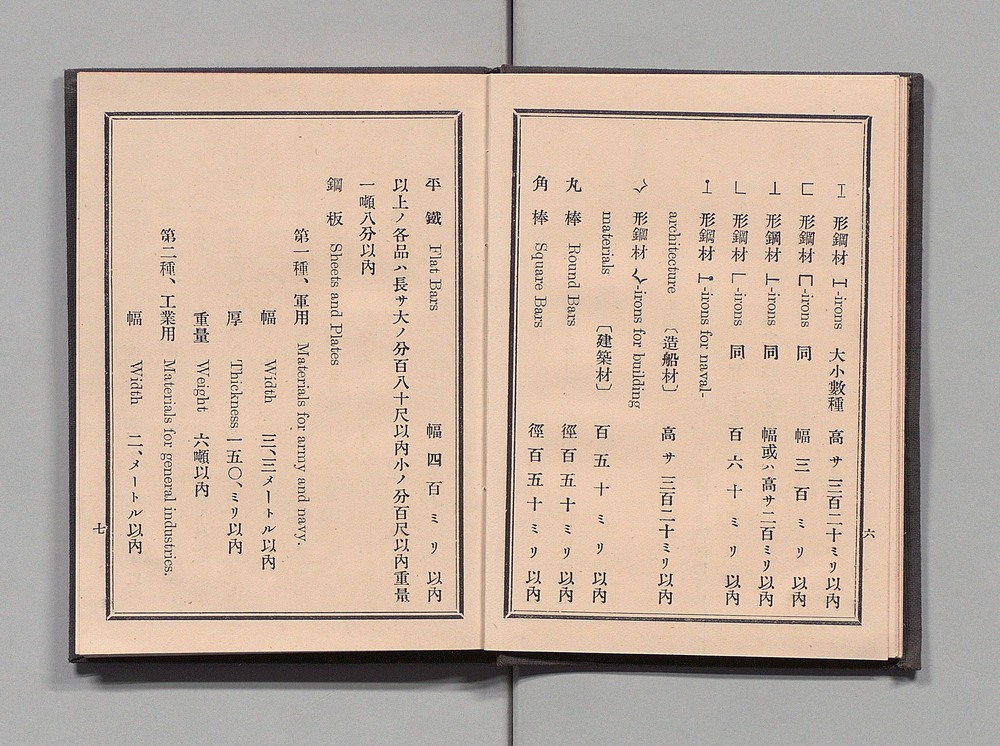 工形鋼材 工-irons 大小數種 高サ三百二十ミリ以內
匚形鋼材 匚-irons 同 幅三百ミリ以內
⊥形鋼材 ⊥-irons 同 幅或ハ高サ二百ミリ以內
∟形鋼材 ∟-irons 同 百六十ミリ以內
形鋼材 -irons for naval-
architecture 〔造船材〕 高サ三百二十ミリ以內
形鋼材 -irons for building
materials 〔建築材〕 百五十ミリ以內
丸棒 Round Bars 徑百五十ミリ以內
角棒 Square Bars 徑百五十ミリ以內
六
平鐵 Flat Bars 幅四百ミリ以內
以上ノ各品ハ長サ大ノ分百八十尺以內小ノ分百尺以內重量
一噸八分以內
鋼板 Sheets and Plates
第一種、軍用 Materials for army and navy.
幅 Width 三、三メートル以內
厚 Thickness 一五〇、ミリ以內
重量 Weight 六噸以內
第二種、工業用 Materials for general industrics.
幅 Width 二、メートル以內
七